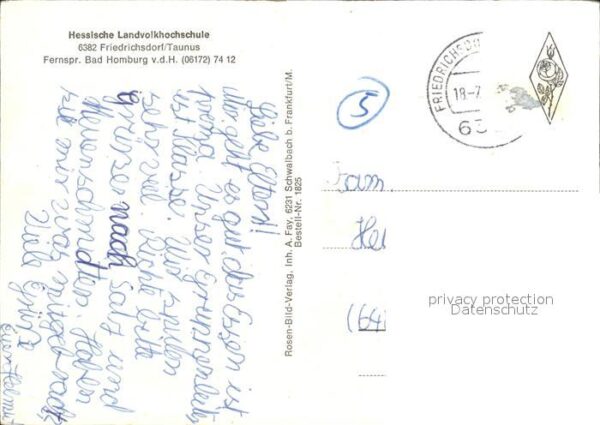 Hessische Landvolkhochschule
6382 Friedrichsdorf/Taunus
Fernspr. Bad Homburg v.d.H. (06172) 74 12
Liebe Eltern!
Mir geht es gut, das Essen ist
prima. Unser
ist Klasse. Wir spielen
sehr viel. Richte bitte
Grüsse nach Salz und
Haben
sie mir was mitgebracht?
Viele Grüße
euer Helmut
Rosen-Bild-Verlag, Inh. A. Fay, 6231 Schwalbach b. Frankfurt/M.
Bestell-Nr. 1825
5
FRIEDRICHSDO
18.-7
63
Fam.
He
(64
privacy protection
Datenschutz